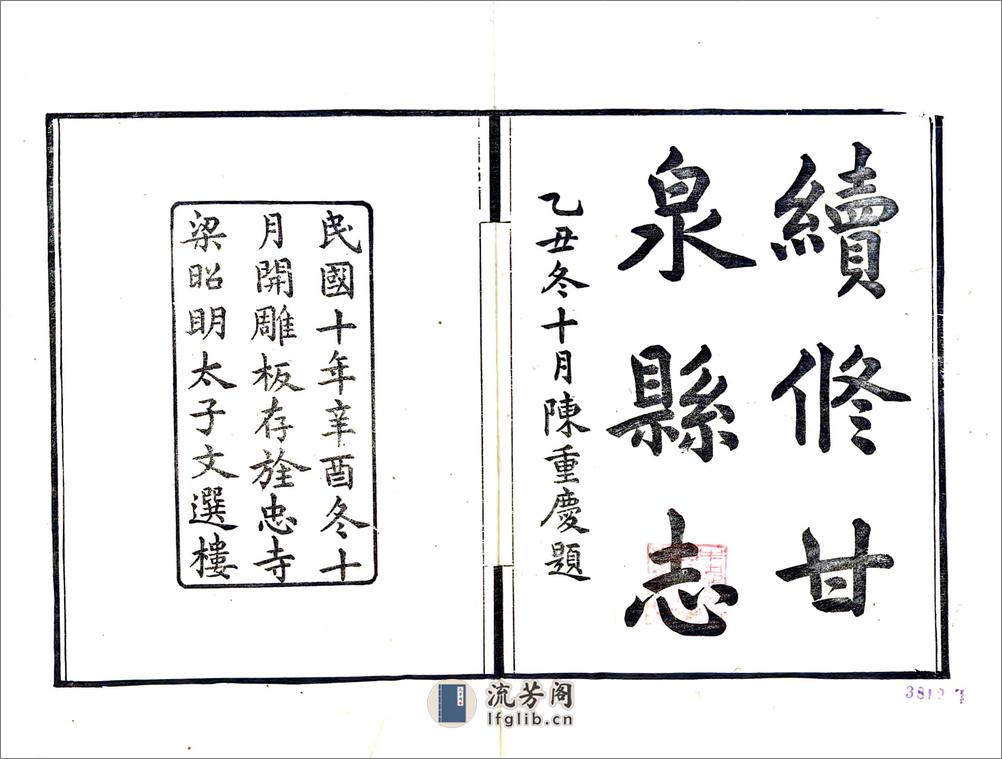 續修甘
泉縣志
乙丑冬十月陳重慶題
民國十年辛酉冬十
月開雕板存於忠寺
梁昭明太子文選樓
流芳阁
lfglib.cn
3812 7